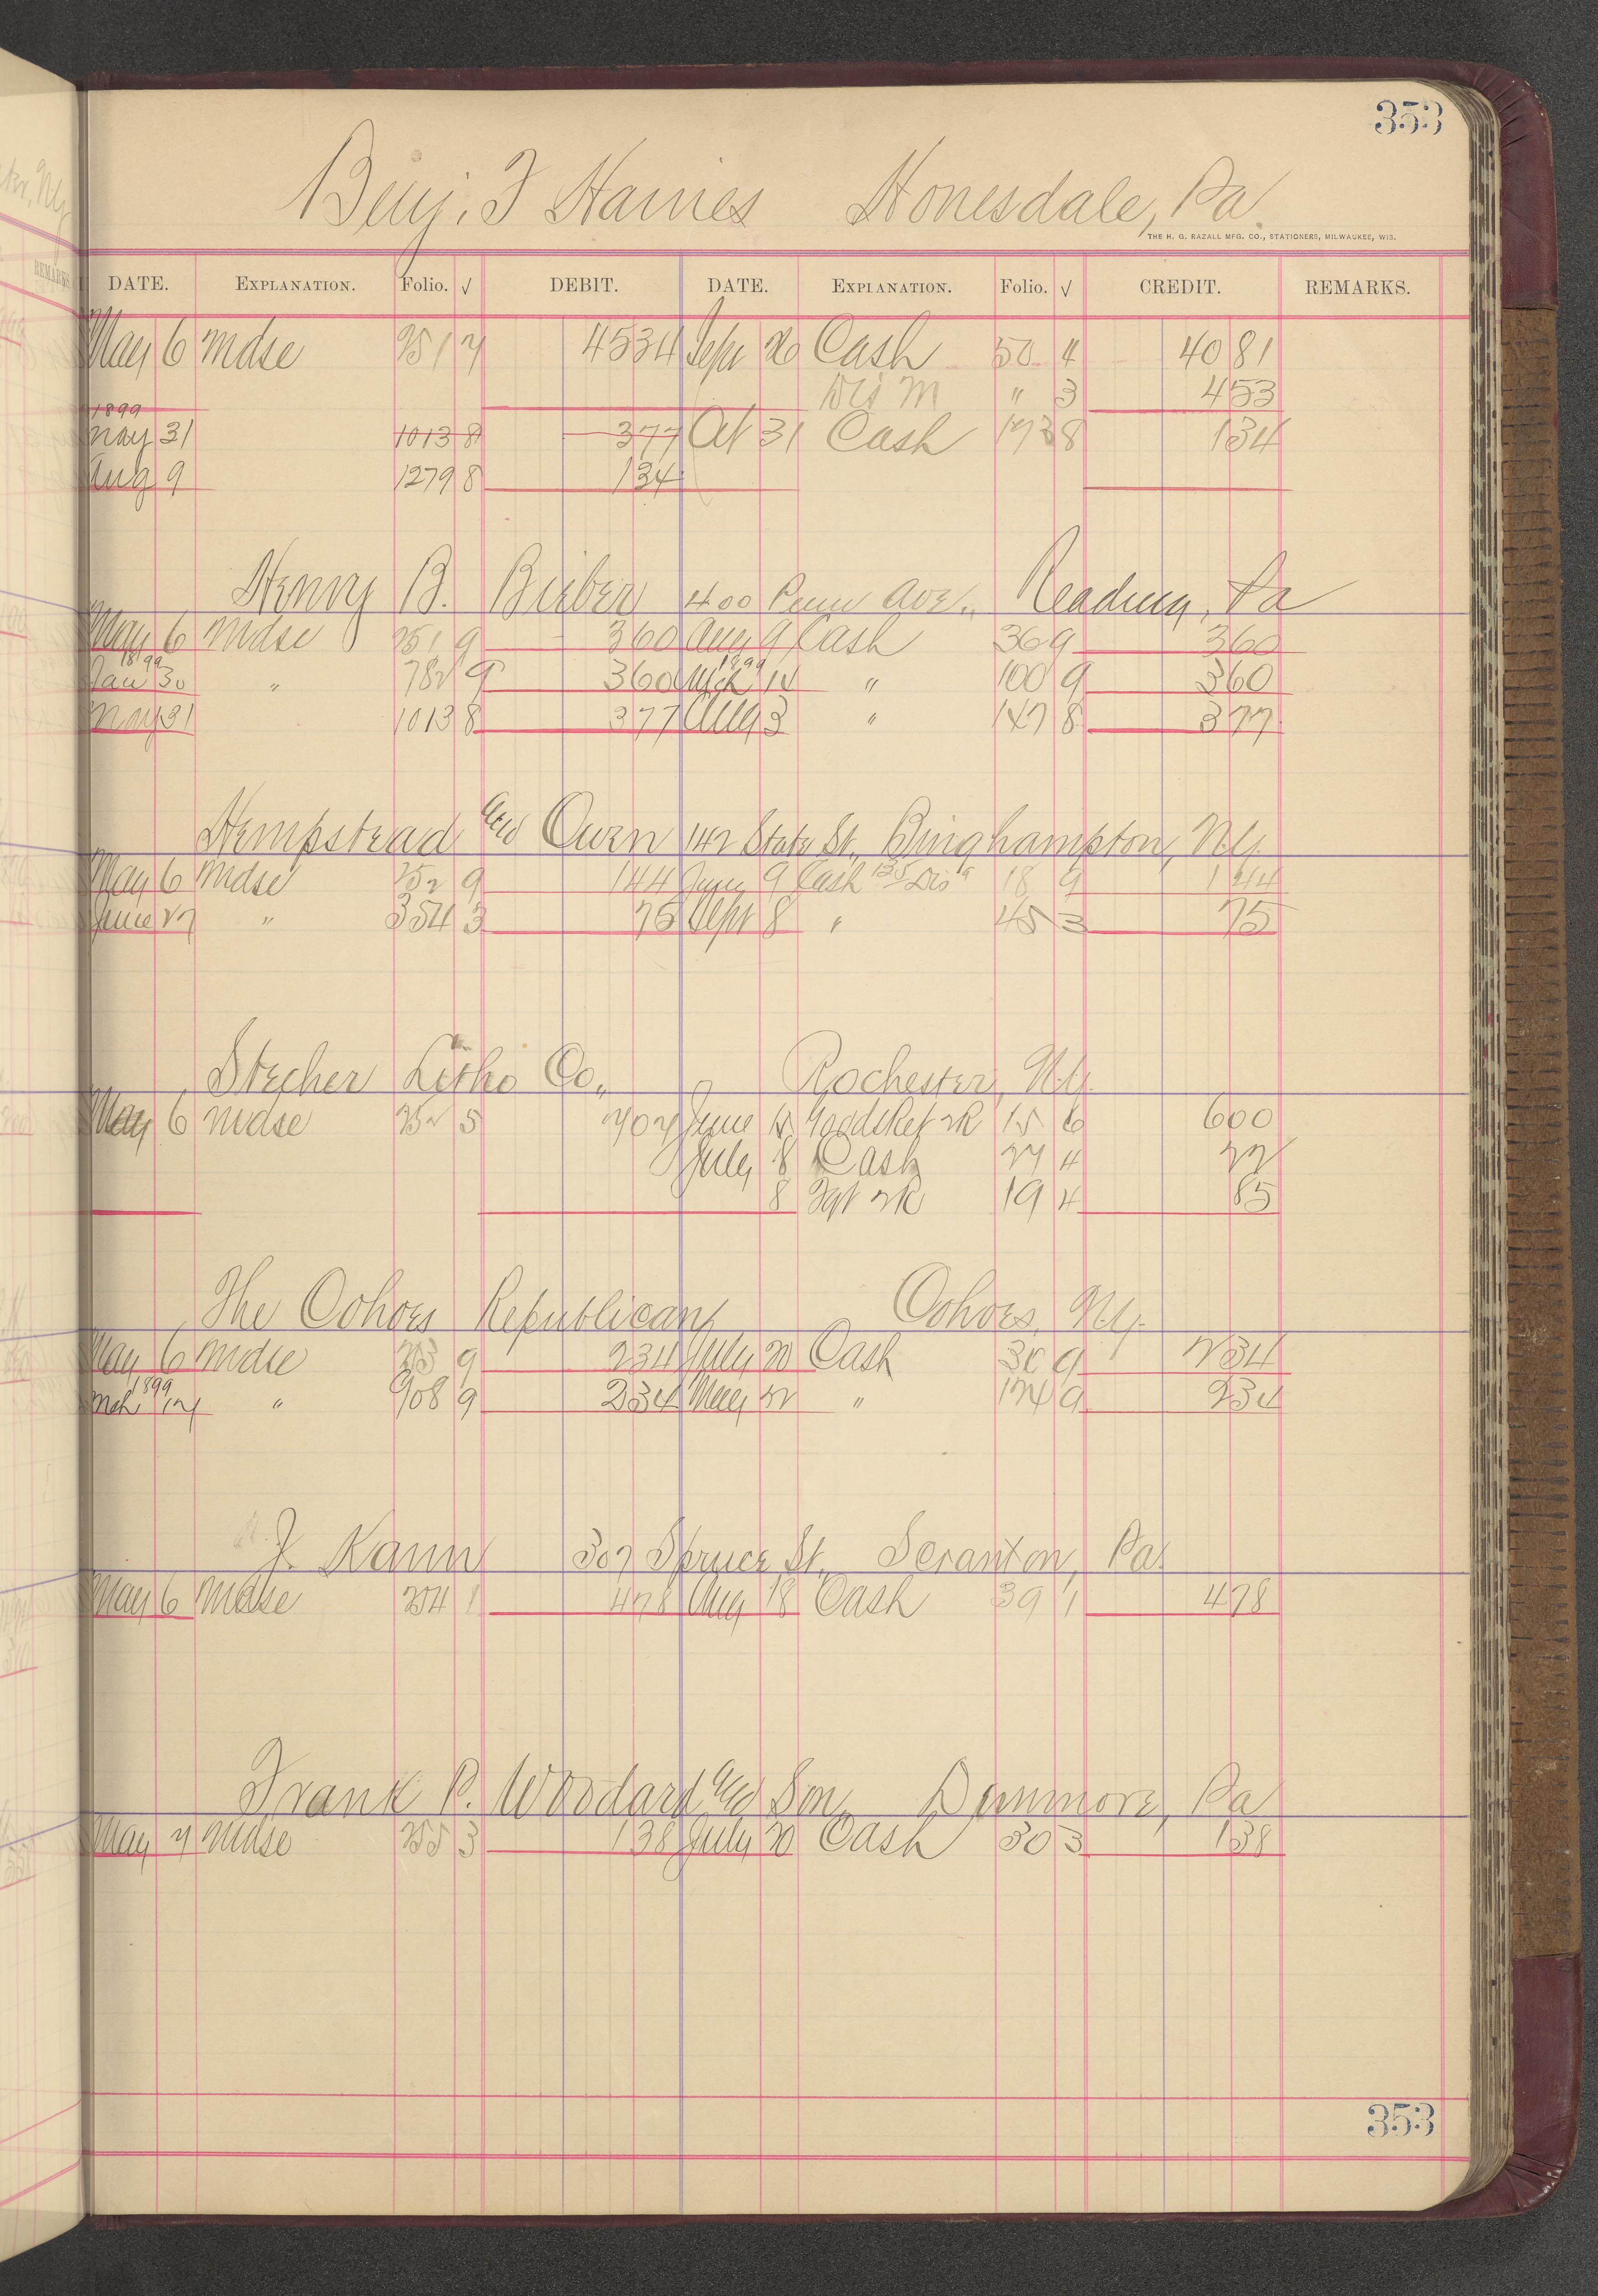 353
Benj. F Haines Honesdale, Pa.
THE H. G. RAZALL MFG. CO., STATIONERS, MILWAUKEE, WIS.
DATE. EXPLANATION. Folio. √ DEBIT. DATE. EXPLANATION. Folio. √ CREDIT. REMARKS.
May 6 Mdse 251 7 45 34 Sept 26 Cash 50 4 40 81
Dis M " 3 4 53
1899
May 31 1013 8 3 77 Oct 31 Cash 173 8 1 34
Aug 9 1279 8 1 34
Henry B. Bieber 400 Penn Ave., Reading, Pa
May 6 Mdse 251 9 3 60 Aug 9 Cash 36 9 3 60
1899 1899
Jan 30 " 782 9 3 60 Mch 14 " 100 9 3 60
May 31 1013 8 3 77 Aug 3 " 147 8 3 77
Hempstead and Owen 142 State St., Binghampton, N.Y.
May 6 Mdse 252 9 1 44 June 9 Cash Dis 18 9 1 44
June 27 " 354 3 75 Sept 8 " 45 3 75
Stecher Litho Co., Rochester, N.Y.
May 6 Mdse 252 5 7 07 June 15 Goods Ret 2R 15 6 6 00
July 8 Cash 27 4 22
8 Fgt 2R 19 4 85
The Cohoes Republican, Cohoes, N.Y.
May 6 Mdse 253 9 2 34 July 20 Cash 30 9 2 34
1899
Mch 17 " 908 9 2 34 May 22 " 124 9 2 34
J. Kann 307 Spruce St., Scranton, Pa.
May 6 Mdse 254 1 4 78 Aug 18 Cash 39 1 4 78
Frank P. Woodard and Son, Dunmore, Pa
May 7 Mdse 255 3 1 38 July 20 Cash 30 3 1 38
353